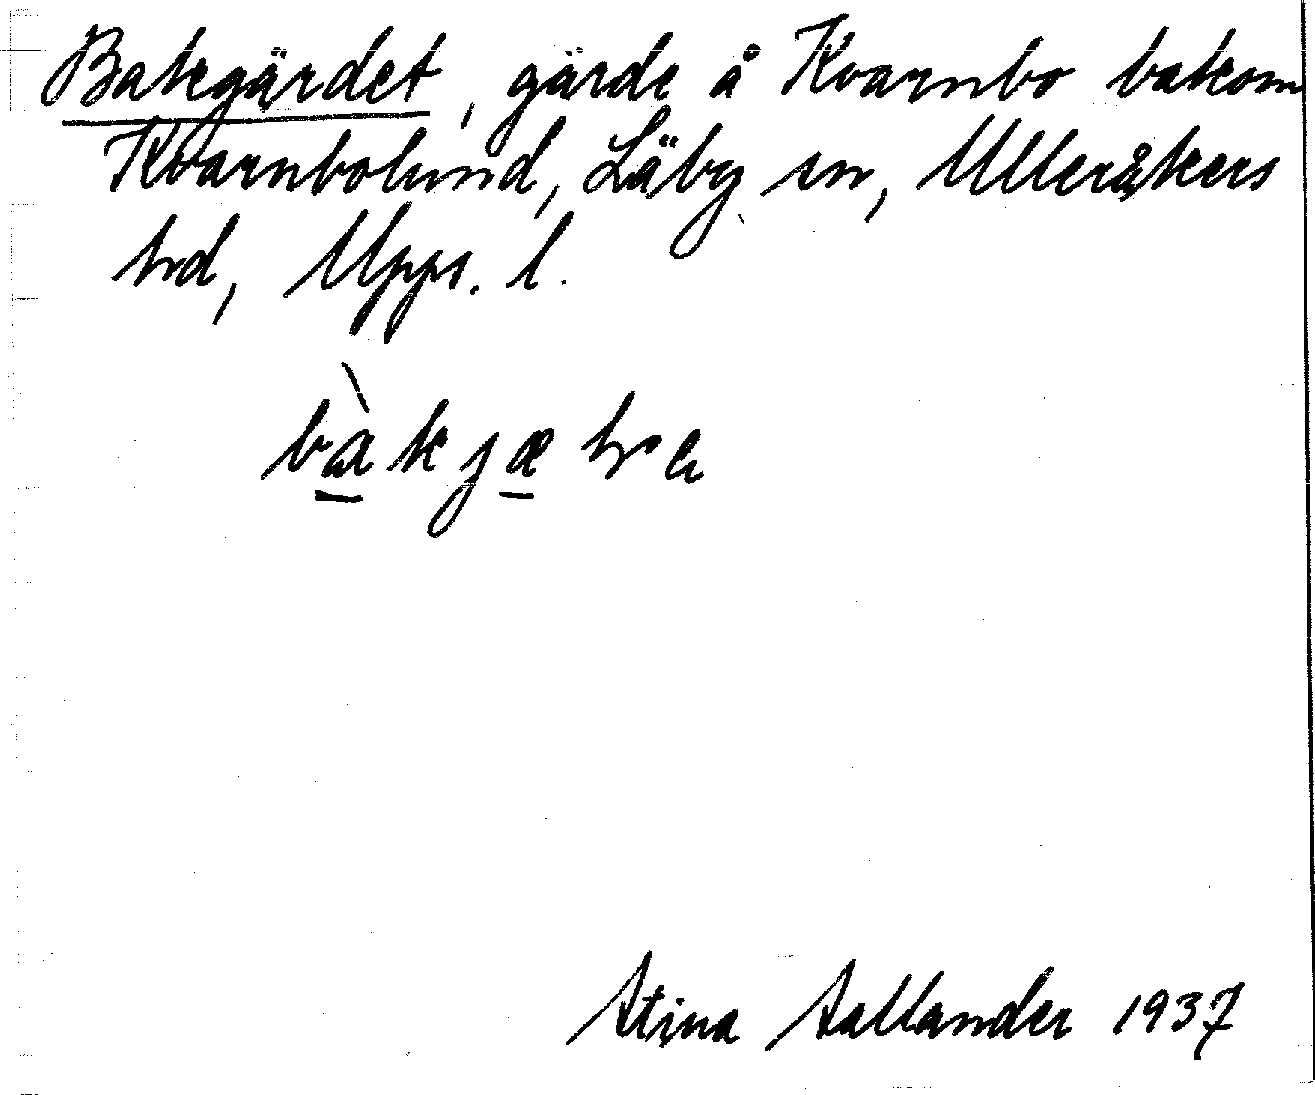 Bakgärdet, gärde å Kvarnbo bakom
Kvarnbolund, Läby sn, Ulleråkers
hd, Upps. l.
Stina Sallander 1937